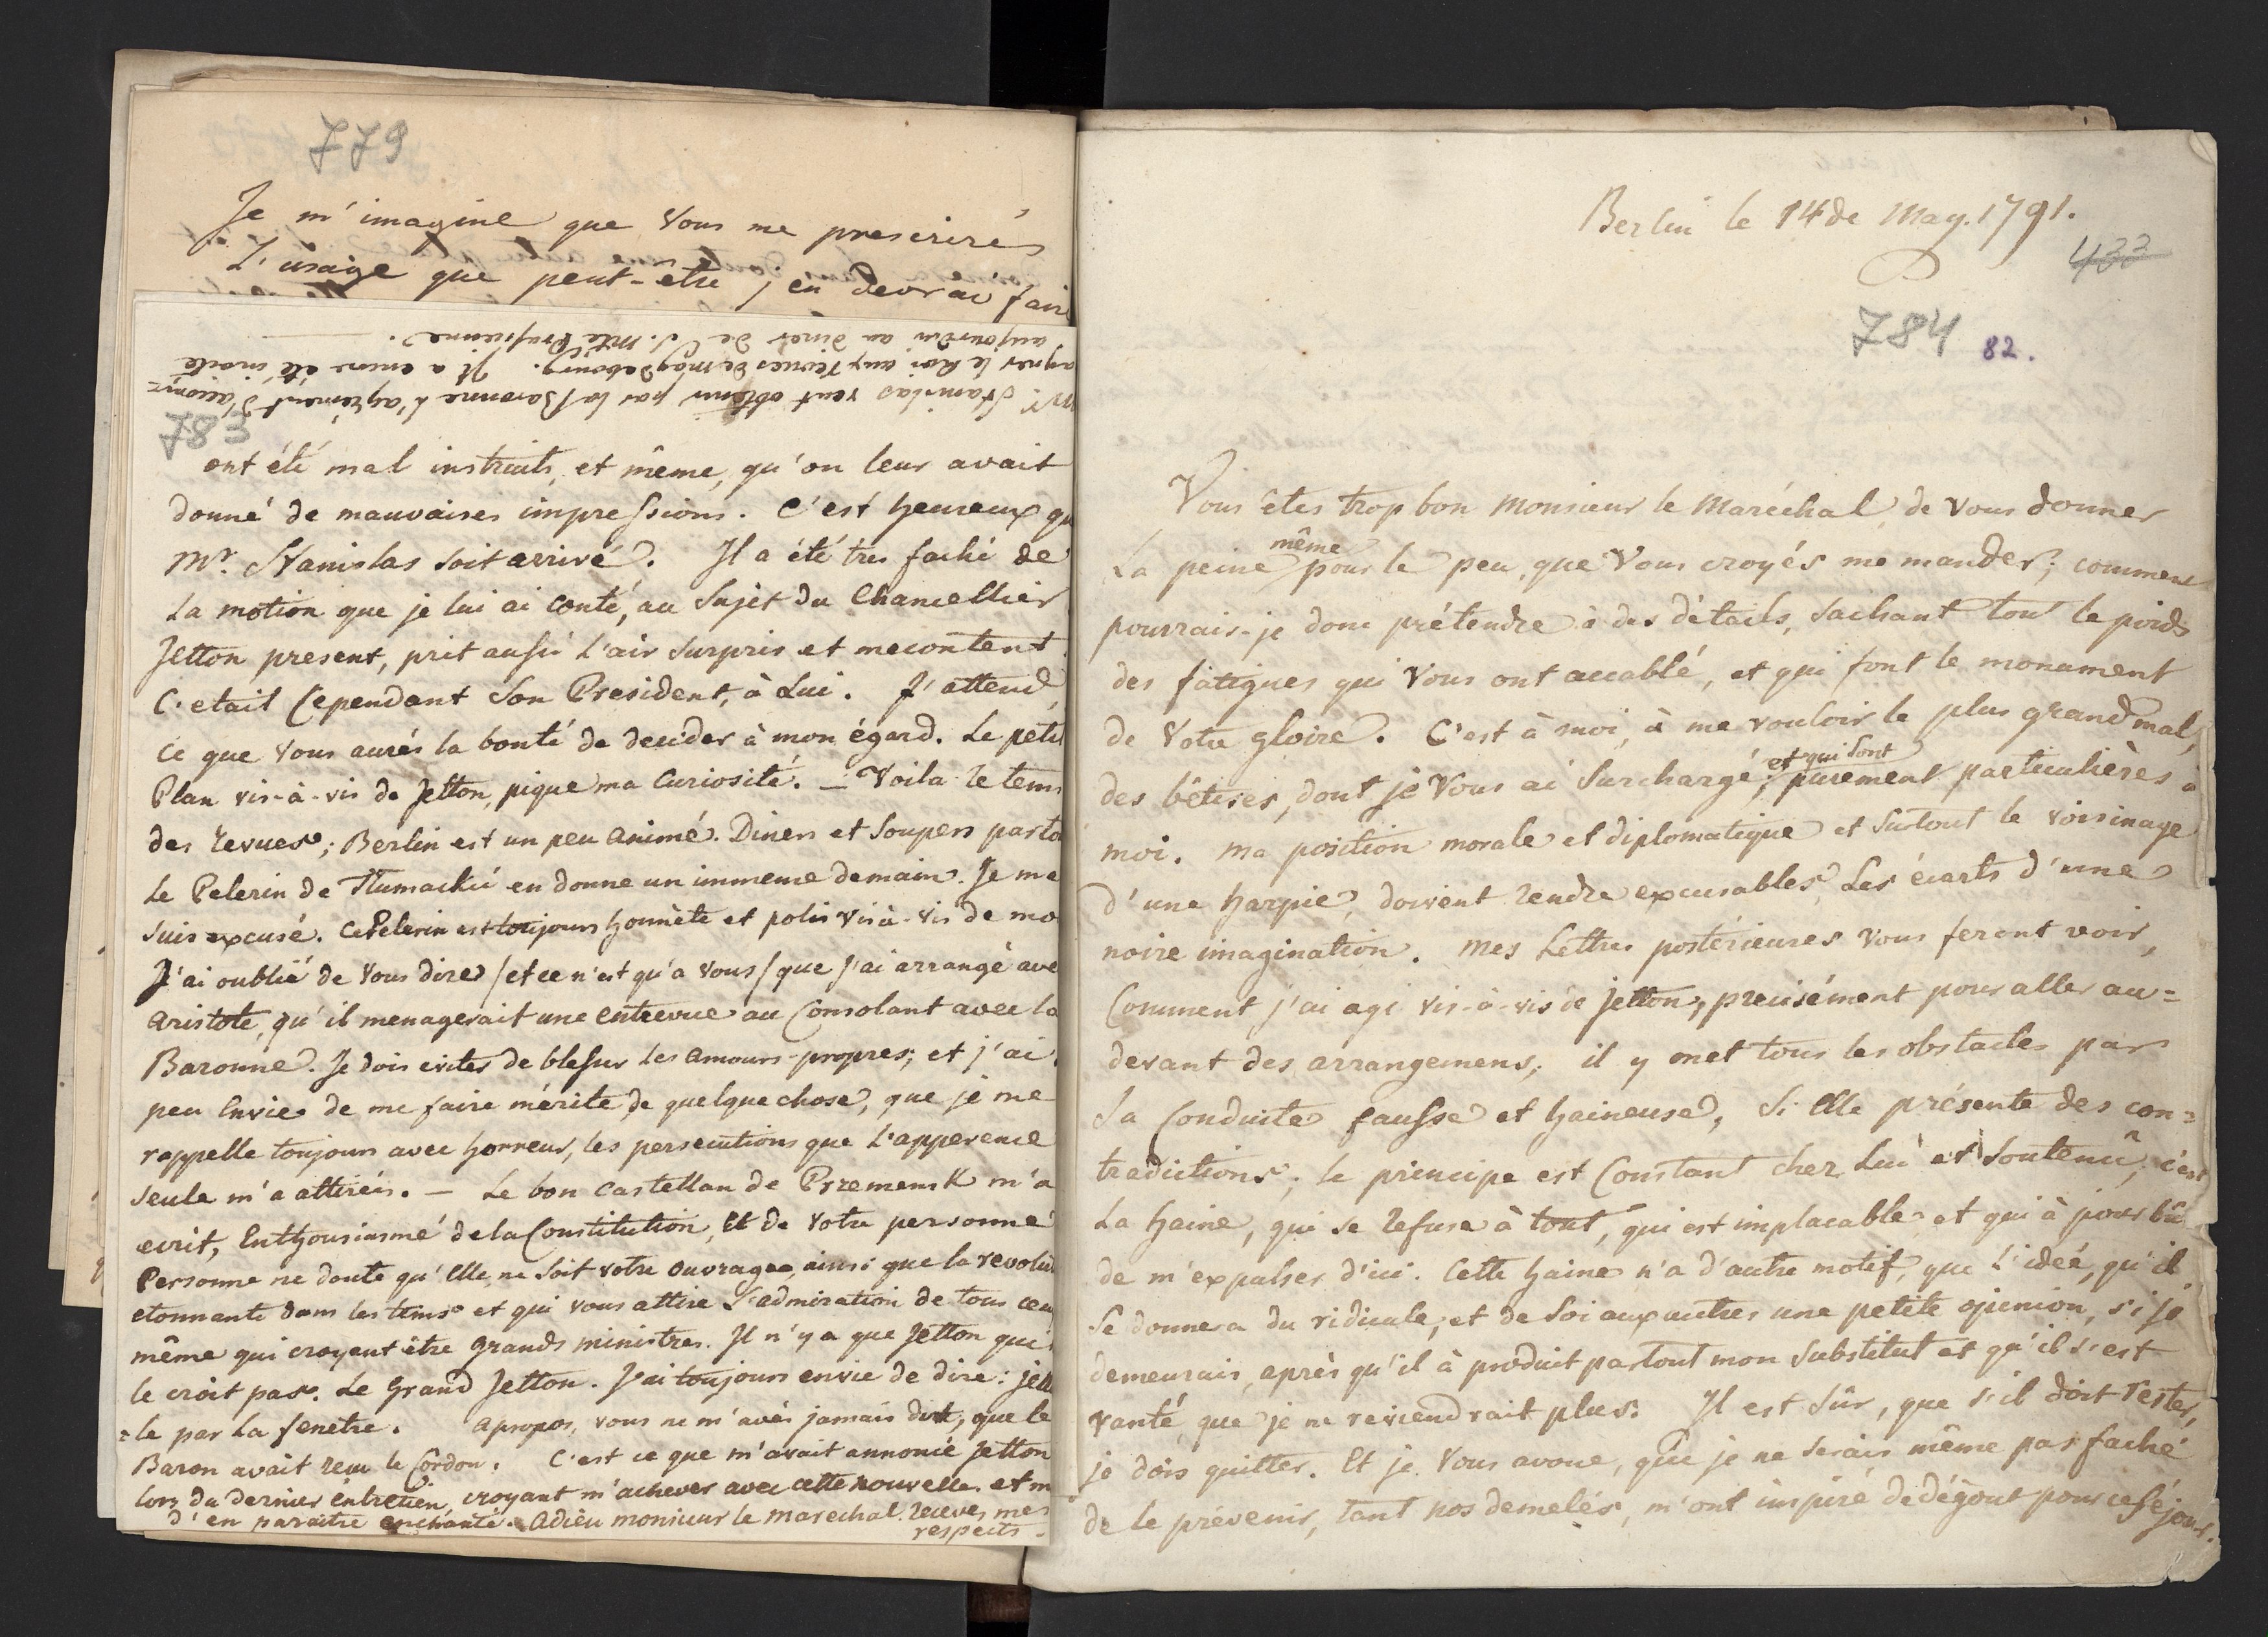 779
Je m'imagine que Vous me prescrirés
L'usaige que peut-etre j'en devrai fair
Mr. Stanislas veut obtenir par la Baronne l'agrément d'accom=
agner le Roi aux revues de Magdebourg. Il a encore été invité
aujourdui au diner de S. Mté Prussienne.
783
ont été mal instruits, et même, qu'on leur avait
donné de mauvaises impressions. C'est heureux qu
Mr. Stanislas soit arrivé. Il a été tres faché de
La motion que je lui ai conté, au Sujèt du Chancellier
Jetton present, prit aussi L'air surpris et mecontent
C'etait Cependant Son President, à Lui. J'attend,
ce que Vous aurés la bonté de decider à mon égard. Le petit
Plan vis-à-vis de Jetton, pique ma Curiosité. — Voila le tems
des revues; Berlin est un peu animé. Diners et Soupers parto
Le Pelerin de Tlumackié en donne un immense demain. Je me
suis excusé. Ce Pelerin est toujours honnète et polis vis à-vis de mo
J'ai oublié de Vous dire /et ce n'est qu'a Vous/ que j'ai arrangé ave
Aristote, qu'il menagerait une entrevue au Consolant avec la
Baronne. Je dois eviter de blesser les amours-propres; et j'ai
peu Envie de me faire mérite de quelque chose, que je me
rappelle toujours avec horreur, les persecutions que L'apperence
seule m'a attirées. — Le bon Castellan de Przemensk m'a
ecrit, Enthousiasmé de la Constitution, Et de Votre personne
Personne ne doute qu'Elle ne soit votre ouvrage, ainsi que la revolut
etonnante dans les tems et qui vous attire L'admiration de tous ceux
même qui croyent être grands ministres. Il n'y a que Jetton qui
le croit pas. Le Grand Jetton. J'ai toujours envie de dire: jett
=le par La fenetre. Apropos, vous ne m'avés jamais dit, que le
Baron avait reçu le Cordon. C'est ce que m'avait annoncé Jetton
lors du dernier entretien, croyant m'achever avec cette nouvelle. et m
d'en paraitre enchanté. Adieu monsieur le marechal. recevés mes
respects.
Berlin le 14 de May. 1791.
433
784 82.
Vous êtes trop bon Monsieur le Maréchal, de Vous donner
La peine même pour le peu, que Vous croyés me mander; comment
pourrais-je donc prétendre à des détails, sachant tout le poids
des fatigues qui Vous ont accablé, et qui font le monument
de Votre gloire. C'est à moi, à me vouloir le plus grand mal,
des bêtises, dont je Vous ai Surchargé; et qui sont purement particulières à
moi. Ma position morale et diplomatique et surtout le voisinage
d'une harpie, doivent rendre excusables Les écarts d'une
noire imagination. Mes Lettres postérieures Vous feront voir,
Comment j'ai agi vis-à-vis de Jetton, precisément pour aller au=
devant des arrangemens; il y met tous les obstacles par
Sa Conduite fausse et haineuse, Si Elle présente des con=
tradictions; le principe est Constant chez Lui et Soutenû, c'est
La haine, qui se refuse à tout, qui est implacable et qui à pour bû
de m'expulser d'ici. Cette haine n'a d'autre motif, que L'ideé, qu'il
Se donnera du ridicule, et de Soi aux autres une petite opinion, si je
demeurais, après qu'il à produit partout mon Substitut et qu'il s'est
vanté que je ne reviendrait plus. Il est Sûr, que s'il doit rester,
je dois quitter. Et je Vous avoue, que je ne serais même pas faché
de le prévenir, tant nos demelés, m'ont inspiré de dégout pour ce Séjour.